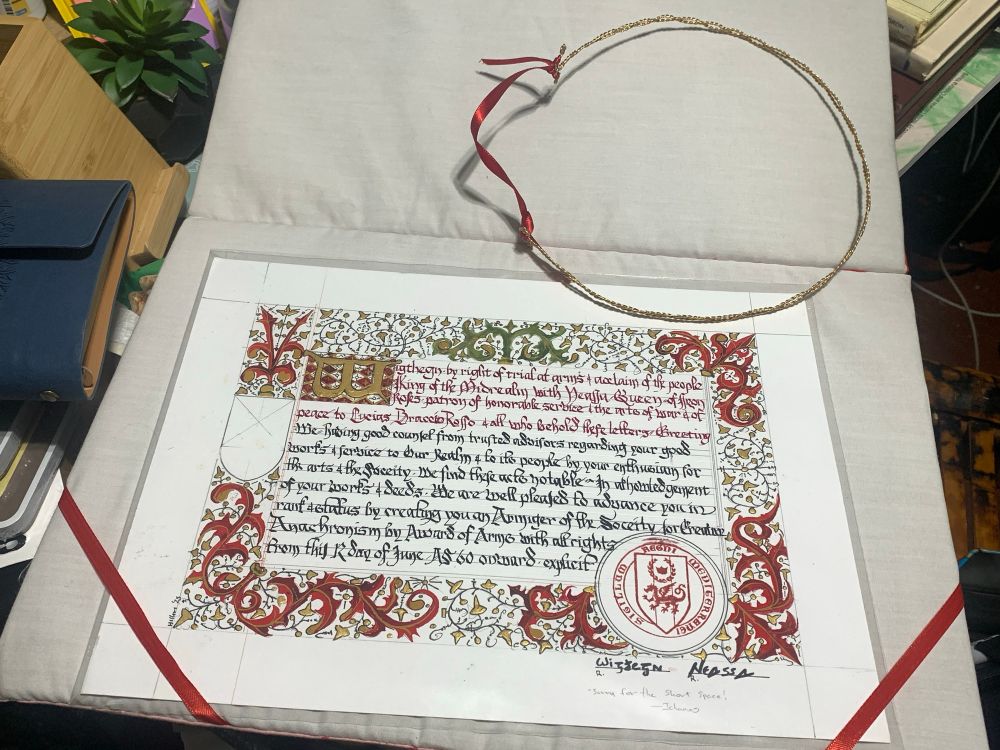 Wigthegn by right of trial at arms & acclaim of the people
King of the Midrealm with Neassa Queen of Iron
Roses patron of honorable service & the arts of war & of
peace to Lucias Braccio Rosso & all who behold these letters Greeting
We having good counsel from trusted advisors regarding your good
works & service to Our Realm & to its people by your enthusiasm for
the arts & the Soceity. We find these acts notable ~ In acknowledgement
of your works & deeds. We are well pleased to advance you in
rank & status by creating you an Armiger of the Soceity for Creative
Anachronism by Award of Arms with all rights
from this day of June AS 60 onward explicit
SIGILLUM REGNI MEDITERRANEI
Wigthegn Neassa
R. R.
"sorry for the short space!